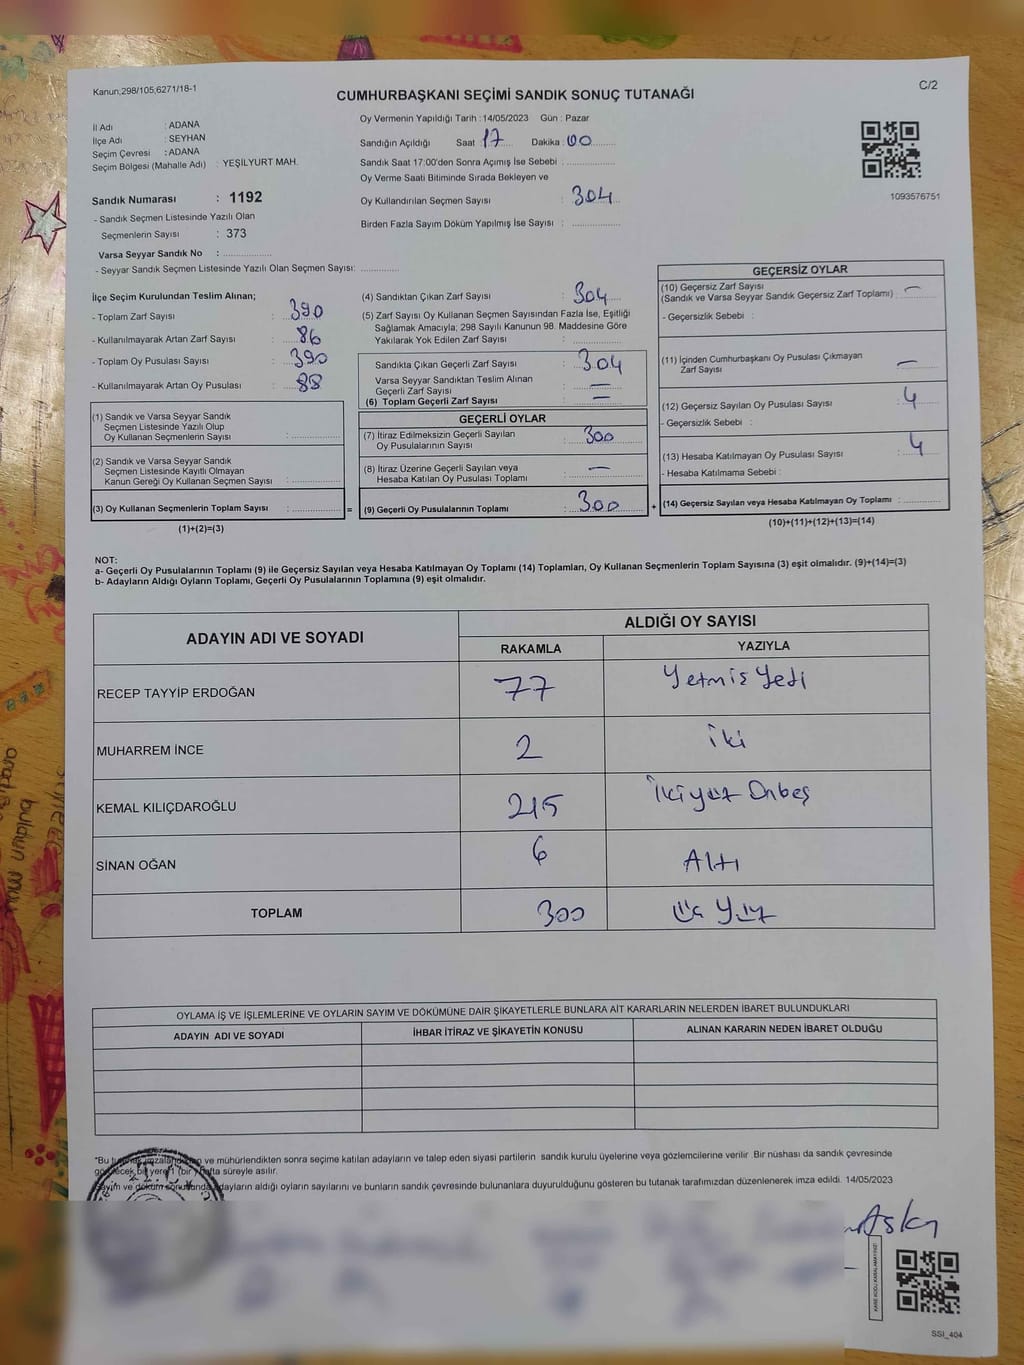 Kanun;298/105,6271/18-1
C/2
CUMHURBAŞKANI SEÇİMİ SANDIK SONUÇ TUTANAĞI
İl Adı : ADANA
İlçe Adı : SEYHAN
Seçim Çevresi : ADANA
Seçim Bölgesi (Mahalle Adı) : YEŞİLYURT MAH.
Sandık Numarası : 1192
- Sandık Seçmen Listesinde Yazılı Olan
Seçmenlerin Sayısı : 373
Varsa Seyyar Sandık No :
- Seyyar Sandık Seçmen Listesinde Yazılı Olan Seçmen Sayısı:
Oy Vermenin Yapıldığı Tarih : 14/05/2023 Gün : Pazar
Sandığın Açıldığı Saat : 17 Dakika : 00
Sandık Saat 17:00'den Sonra Açımış İse Sebebi :
Oy Verme Saati Bitiminde Sırada Bekleyen ve
Oy Kullandırılan Seçmen Sayısı : 304
Birden Fazla Sayım Döküm Yapılmış İse Sayısı :
1093576751
İlçe Seçim Kurulundan Teslim Alınan;
- Toplam Zarf Sayısı : 390
- Kullanılmayarak Artan Zarf Sayısı : 86
- Toplam Oy Pusulası Sayısı : 390
- Kullanılmayarak Artan Oy Pusulası : 88
(1) Sandık ve Varsa Seyyar Sandık
Seçmen Listesinde Yazılı Olup
Oy Kullanan Seçmenlerin Sayısı :
(2) Sandık ve Varsa Seyyar Sandık
Seçmen Listesinde Kayıtlı Olmayan
Kanun Gereği Oy Kullanan Seçmen Sayısı :
(3) Oy Kullanan Seçmenlerin Toplam Sayısı : =
(1)+(2)=(3)
(4) Sandıktan Çıkan Zarf Sayısı : 304
(5) Zarf Sayısı Oy Kullanan Seçmen Sayısından Fazla İse, Eşitliği
Sağlamak Amacıyla; 298 Sayılı Kanunun 98. Maddesine Göre
Yakılarak Yok Edilen Zarf Sayısı :
Sandıkta Çıkan Geçerli Zarf Sayısı : 304
Varsa Seyyar Sandıktan Teslim Alınan
Geçerli Zarf Sayısı : —
(6) Toplam Geçerli Zarf Sayısı : —
GEÇERLİ OYLAR
(7) İtiraz Edilmeksizin Geçerli Sayılan
Oy Pusulalarının Sayısı : 300
(8) İtiraz Üzerine Geçerli Sayılan veya
Hesaba Katılan Oy Pusulası Toplamı : —
(9) Geçerli Oy Pusulalarının Toplamı : 300 +
GEÇERSİZ OYLAR
(10) Geçersiz Zarf Sayısı
(Sandık ve Varsa Seyyar Sandık Geçersiz Zarf Toplamı) : —
- Geçersizlik Sebebi :
(11) İçinden Cumhurbaşkanı Oy Pusulası Çıkmayan
Zarf Sayısı : —
(12) Geçersiz Sayılan Oy Pusulası Sayısı : 4
- Geçersizlik Sebebi :
(13) Hesaba Katılmayan Oy Pusulası Sayısı : 4
- Hesaba Katılmama Sebebi :
(14) Geçersiz Sayılan veya Hesaba Katılmayan Oy Toplamı :
(10)+(11)+(12)+(13)=(14)
NOT:
a- Geçerli Oy Pusulalarının Toplamı (9) ile Geçersiz Sayılan veya Hesaba Katılmayan Oy Toplamı (14) Toplamları, Oy Kullanan Seçmenlerin Toplam Sayısına (3) eşit olmalıdır. (9)+(14)=(3)
b- Adayların Aldığı Oyların Toplamı, Geçerli Oy Pusulalarının Toplamına (9) eşit olmalıdır.
ADAYIN ADI VE SOYADI
ALDIĞI OY SAYISI
RAKAMLA YAZIYLA
RECEP TAYYİP ERDOĞAN 77 Yetmiş Yedi
MUHARREM İNCE 2 İki
KEMAL KILIÇDAROĞLU 215 İkiyüz Onbeş
SİNAN OĞAN 6 Altı
TOPLAM 300 Üç Yüz
OYLAMA İŞ VE İŞLEMLERİNE VE OYLARIN SAYIM VE DÖKÜMÜNE DAİR ŞİKAYETLERLE BUNLARA AİT KARARLARIN NELERDEN İBARET BULUNDUKLARI
ADAYIN ADI VE SOYADI İHBAR İTİRAZ VE ŞİKAYETİN KONUSU ALINAN KARARIN NEDEN İBARET OLDUĞU
"Bu ve mühürlendikten sonra seçime katılan adayların ve talep eden siyasi partilerin sandık kurulu üyelerine veya gözlemcilerine verilir Bir nüshası da sandık çevresinde
bir yere 1 (bir) hafta süreyle asılır.
Sayım ve döküm adayların aldığı oyların sayılarını ve bunların sandık çevresinde bulunanlara duyurulduğunu gösteren bu tutanak tarafımızdan düzenlenerek imza edildi. 14/05/2023
SSI_404